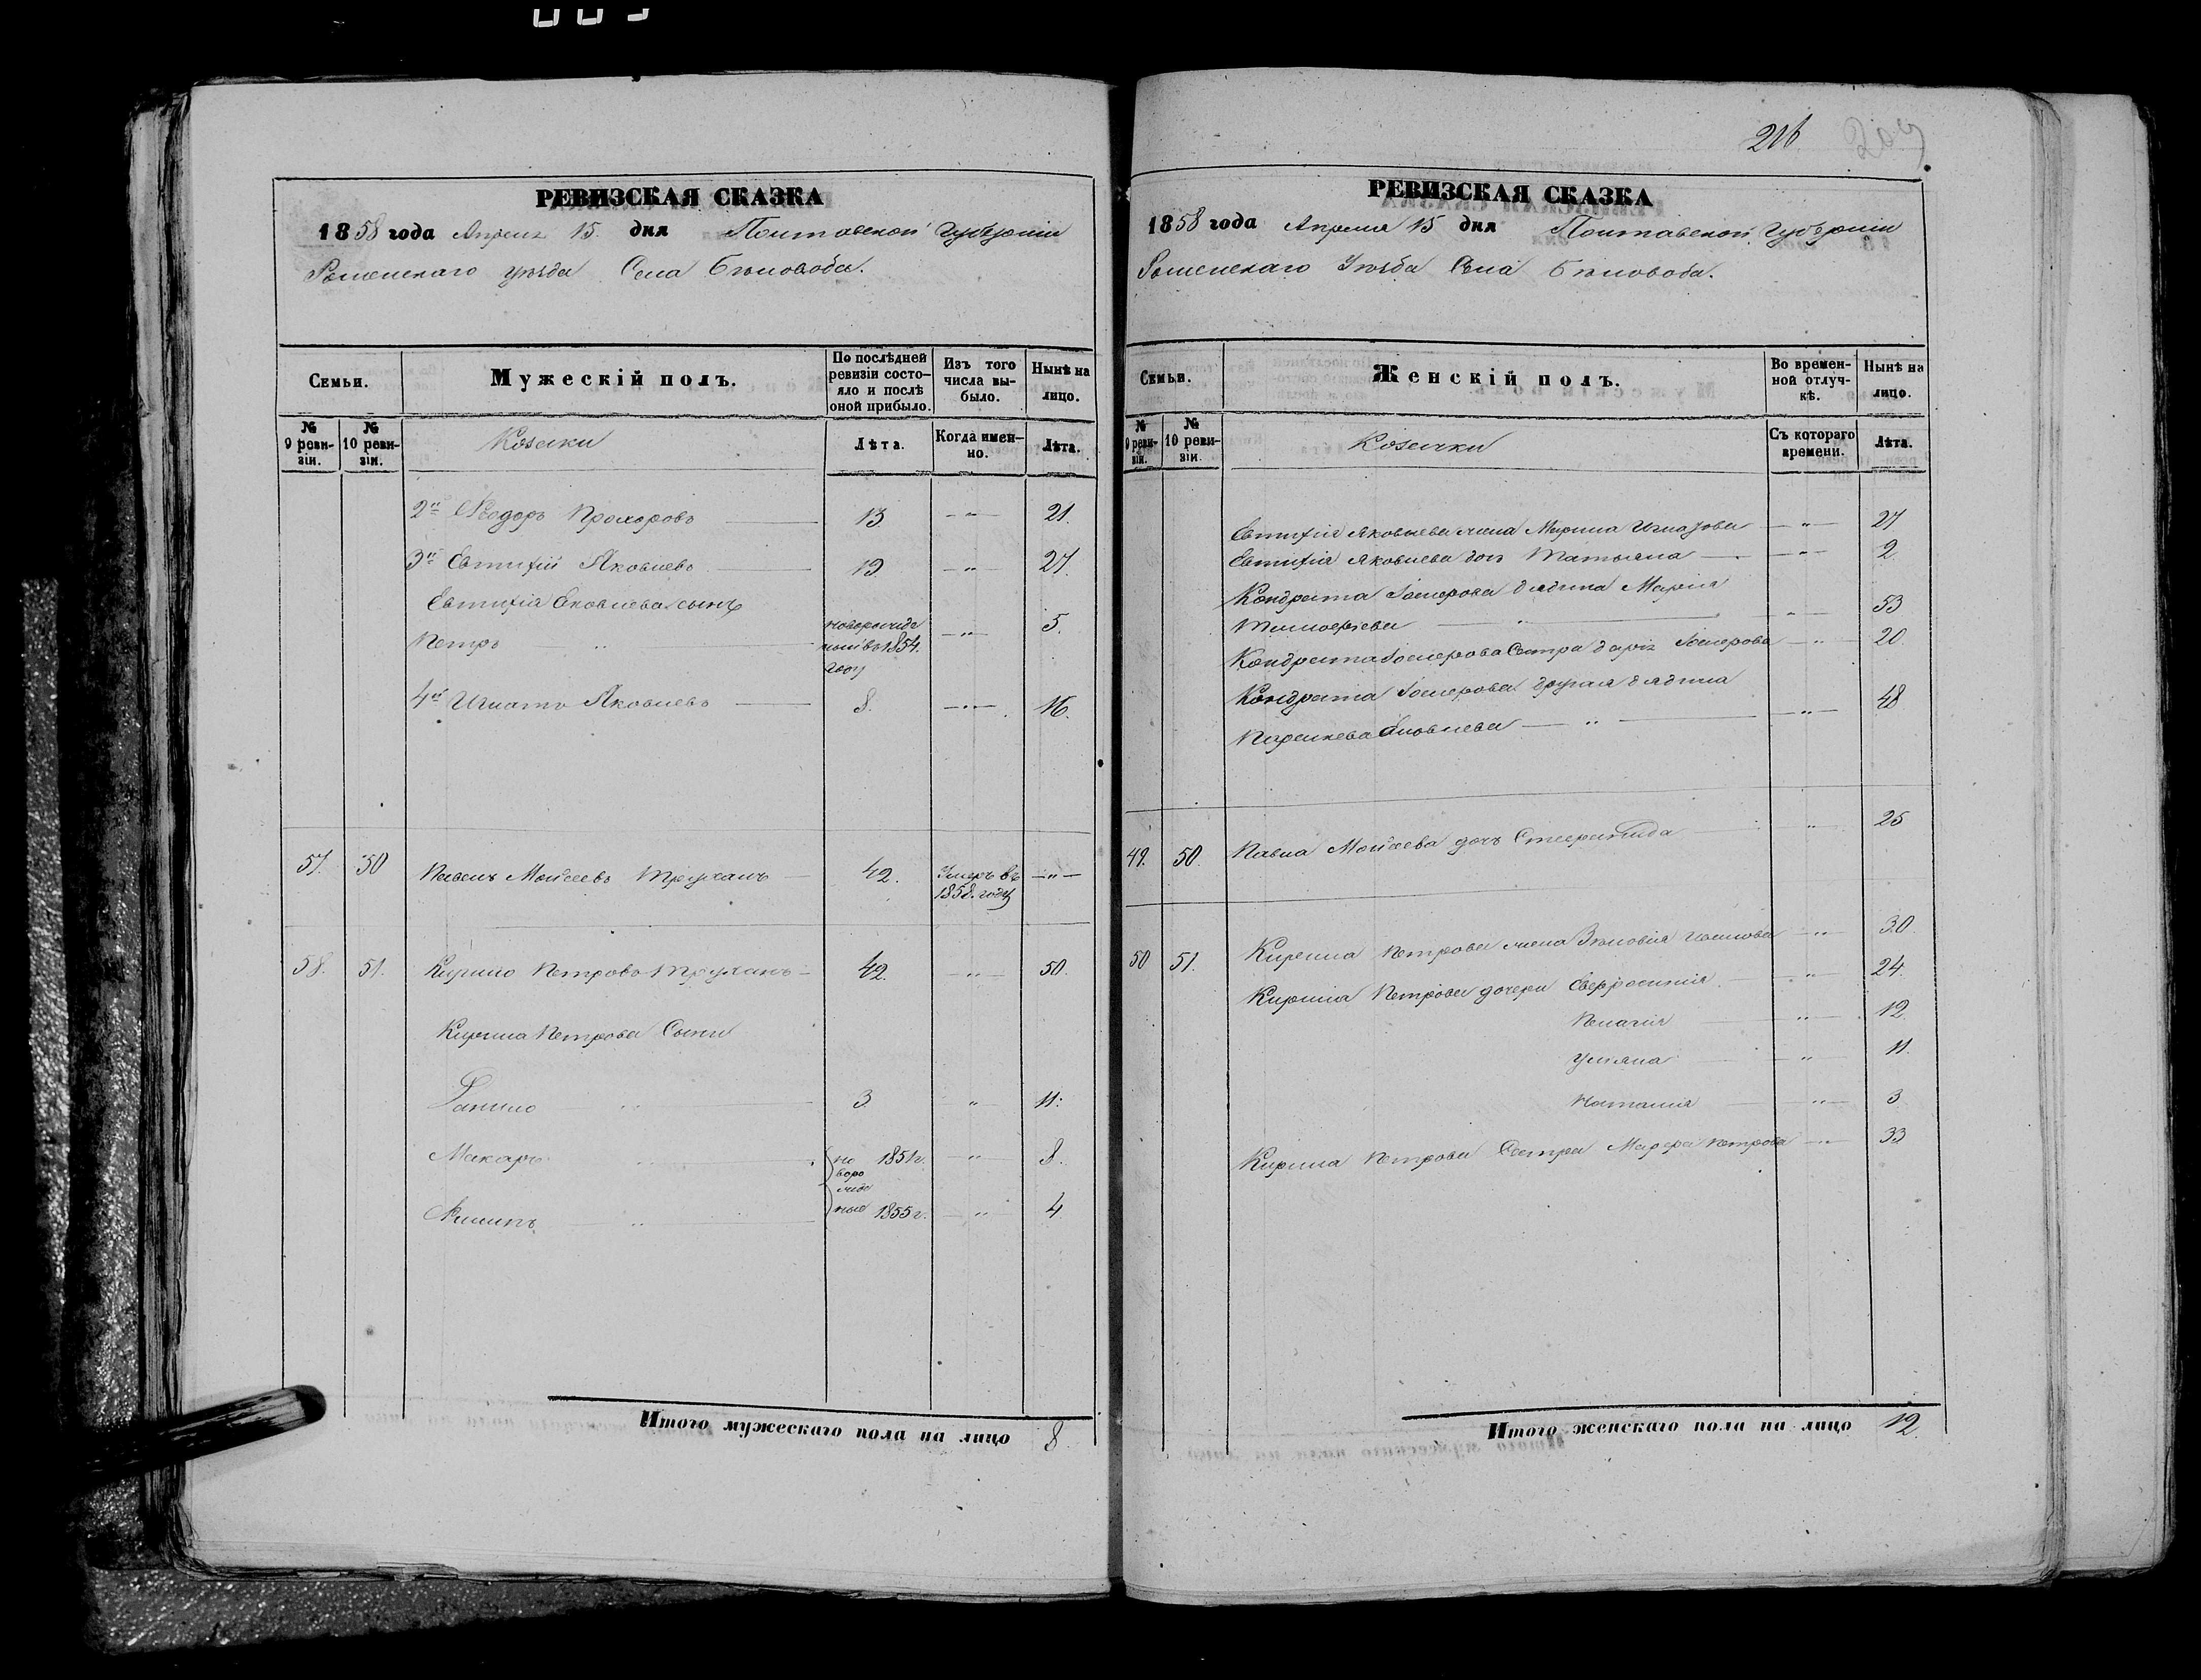 РЕВИЗСКАЯ СКАЗКА
1858 года Апреля 15. дня Полтавской Губерніи
Роменскаго уѣзда Села Бѣловода.
Семьи.
Мужескій полъ.
По послѣдней ревизіи состояло и послѣ оной прибыло.
Изъ того числа выбыло.
Нынѣ на лицо.
№ 9 ревизіи.
№ 10 ревизіи.
Козаки
Лѣта.
Когда именно.
Лѣта.
2й Ѳеодоръ Прохоровъ 13 — " — 21.
3й Евтифій Яковлевъ 19 — " — 27.
Евтифія Яковлева сынъ
Петръ — " новорожденый въ 1854. году — " — 5.
4й Игнатъ Яковлевъ 8. — " — 16.
57. 50 Павелъ Моисеевъ Труханъ 42. Умеръ въ 1858. году — " —
58. 51. Кирило Петровъ Труханъ 42. — " — 50.
Кирила Петрова Сыны
Данило " 3 " 11.
Макаръ " новорожденые 1851 г. " 8.
Филипъ " 1855 г. " 4
Итого мужескаго пола на лицо 8
216
209
РЕВИЗСКАЯ СКАЗКА
1858 года Апреля 15 дня Полтавской Губерніи
Роменскаго Уѣзда Села Бѣловода.
Семьи.
Женскій полъ.
Во временной отлучкѣ.
Нынѣ на лицо.
№ 9 ревизіи.
№ 10 ревизіи.
Козачки
Съ котораго времени.
Лѣта.
Евтифія Яковлева жена Марина Игнатова — " — 27
Евтифія Яковлева дочь Татьяна — " — 2
Кондрата дядина Марія
Тимофѣева — " — 53
Кондрата Сестра Дарья — " — 20
Кондрата другая дядина
Параскева Яковлева — " — 48
49. 50. Павла Моисеева дочь Степанида " 25
50 51. Кирила Петрова жена Зѣновія — " — 30.
Кирила Петрова дочери Евфросинія — " — 24.
Пелагія — " — 12
Уліяна — " 11.
Наталія — " — 3
Кирила Петрова Сестра Марфа Петрова — " — 33
Итого женскаго пола на лицо 12.